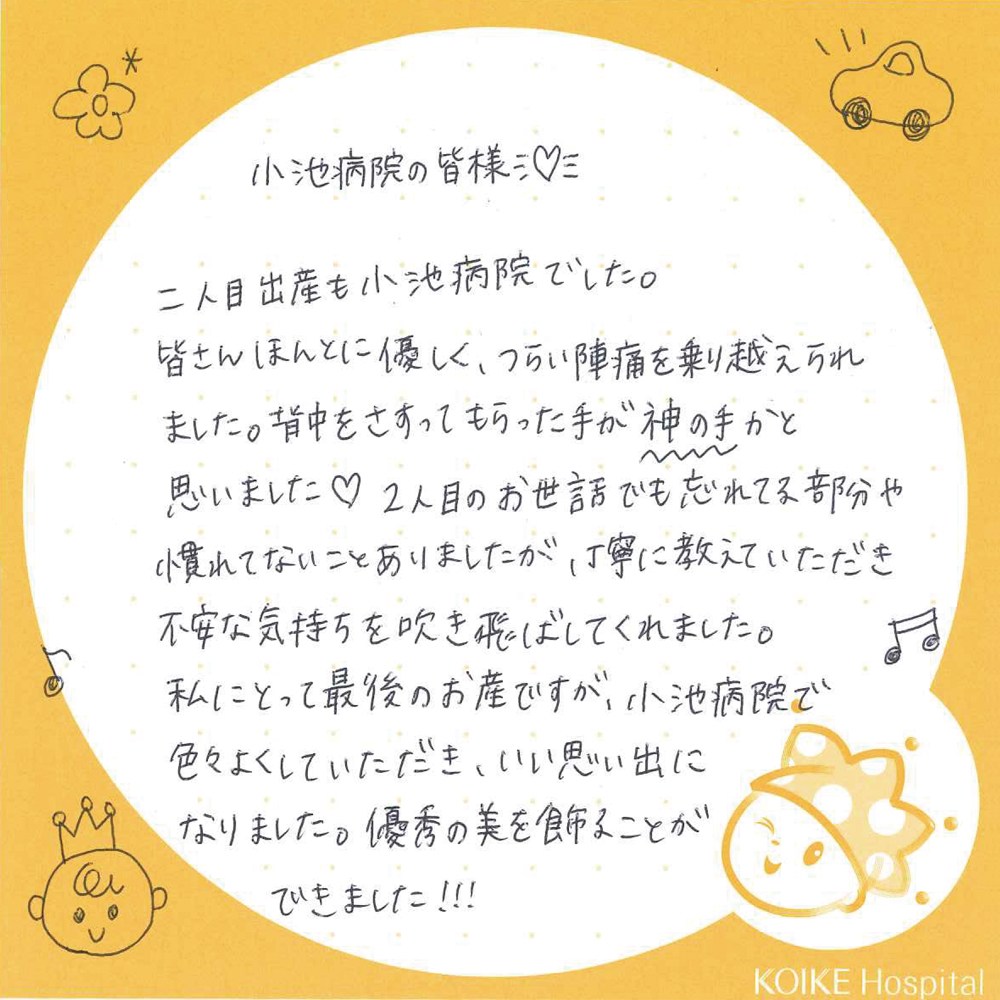 小池病院の皆様♡
二人目出産も小池病院でした。
皆さんほんとに優しく、つらい陣痛を乗り越えられ
ました。背中をさすってもらった手が神の手かと
思いました♡ 2人目のお世話でも忘れてる部分や
慣れてないことありましたが、丁寧に教えていただき
不安な気持ちを吹き飛ばしてくれました。
私にとって最後のお産ですが、小池病院で
色々よくしていただき、いい思い出に
なりました。優秀の美を飾ることが
できました!!!
KOIKE Hospital